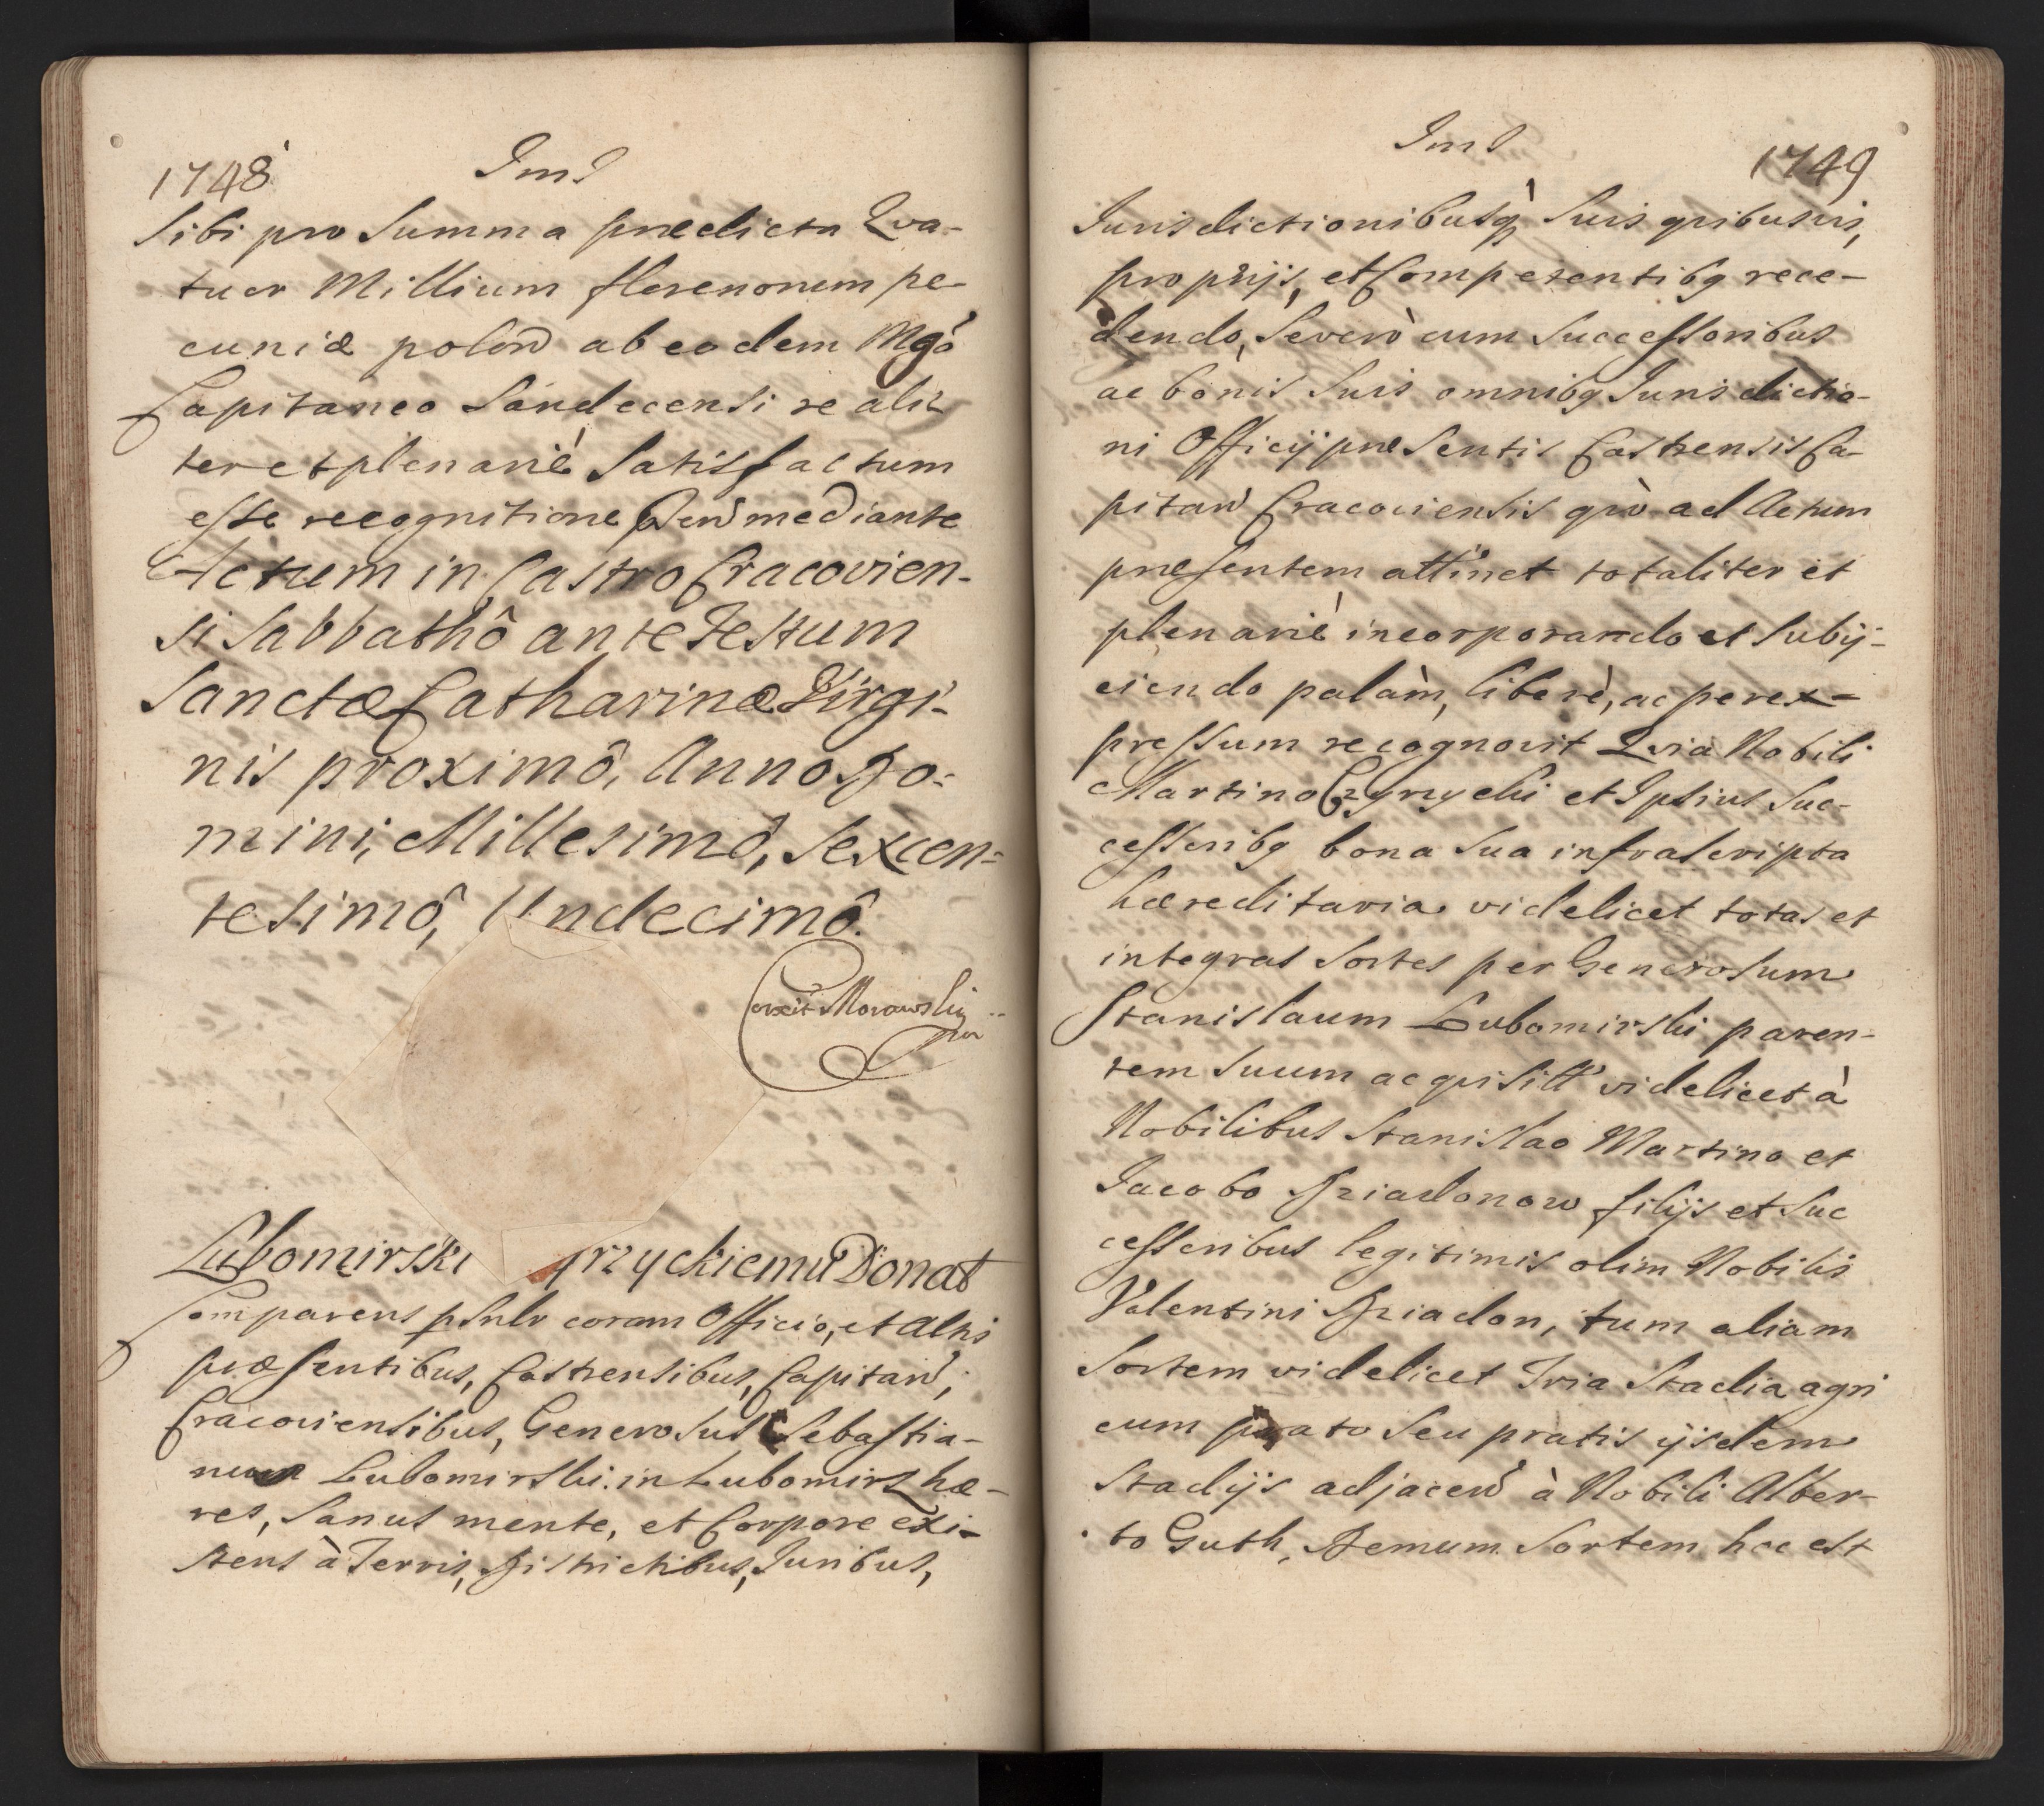 1748
Imś
Sibi pro Summa prædicta Qva-
tuor Millium florenorum pe-
cuniæ polon̄ ab eodem Mgo
Capitaneo Sandecensi reali-
ter et plenariè Satisfactum
esse recognitione mediante
Actum in Castro Cracovien-
si Sabbathô ante Festum
Sanctæ Catharinæ Virgi-
nis proximô, Anno Do-
mini, Millesimô, Sexcen-
tesimô, Undecimô.
Corexit Morawski
Lubomirski rzyckiemu Donat
Comparens psnlr coram Officio, et Actis
præsentibus, Castrensibus, Capitan̄,
Cracoviensibus, Generosus Sebastia-
nus Lubomirski in Lubomirz hæ-
res, Sanus mente, et Corpore exi-
stens à Terris, Districtibus, Juribus,
Imś
1749
Jurisdictionibusq́ Suis qvibusvis,
proprijs, et Competentibq rece-
dendo, Severò cum Successoribus
ac bonis Suis omnibq Jurisdictio-
ni Officij præsentis Castrensis Ca-
pitan̄ Cracoviensis qvò ad Actum
præsentem attinet totaliter et
plenariè incorporando et Subij-
ciendo palàm, liberè, ac per ex-
pressum recognovit Qvia Nobili
Martino et Ipsius Suc-
cessoribq bona Sua infrascripta
hæreditaria videlicet totas et
integras Sortes per Generosum
Stanislaum Lubomirski paren-
tem Suum acqvisitt videlicet à
Nobilibus Stanislao Martino et
Jacobo Dziadonow filijs et Suc
cessoribus legitimis olim Nobilis
Valentini Dziadon, tum aliam
Sortem videlicet Tria Stadia agri
cum prato Seu pratis ijsdem
Stadijs adjacen̄ à Nobili Alber-
to Guth, Demum Sortem hoc est